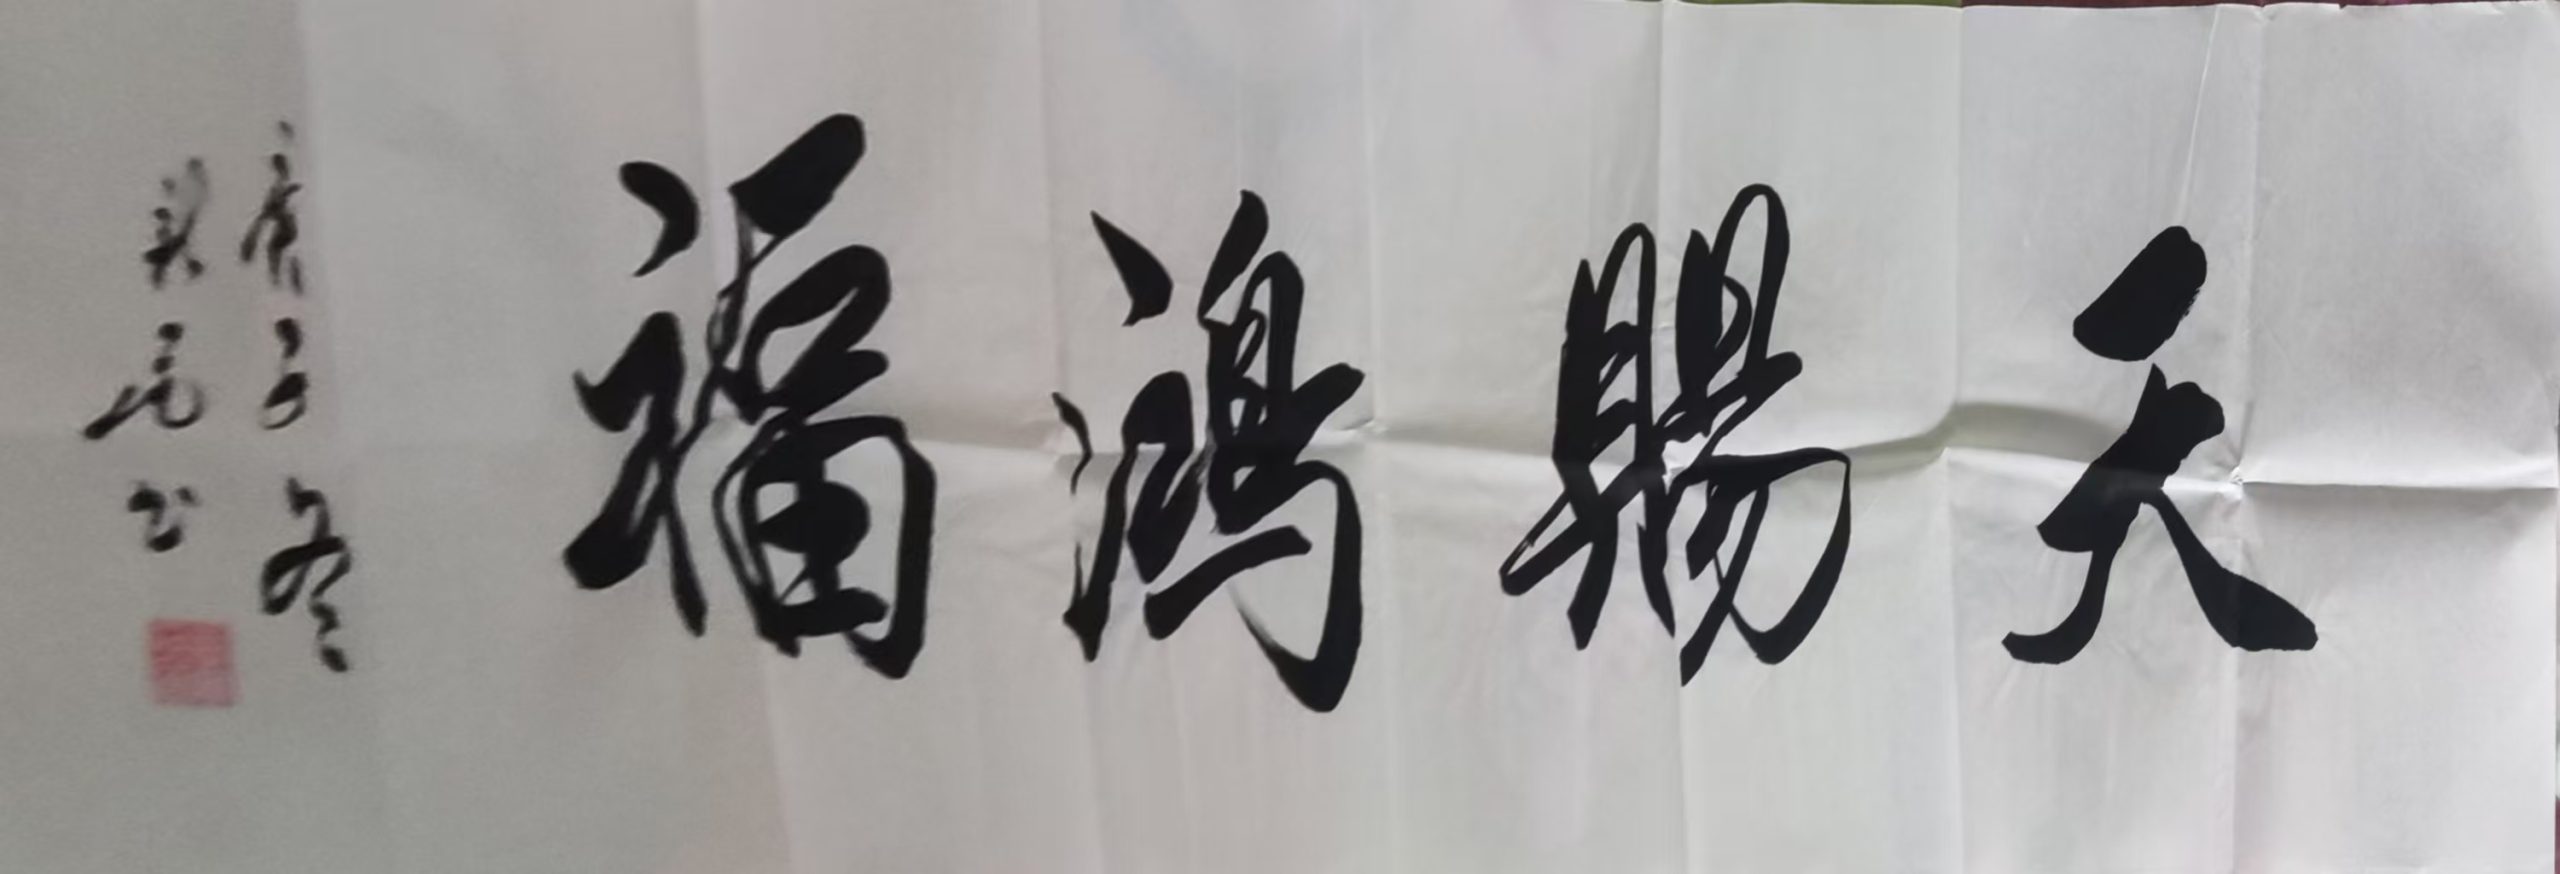 天賜鴻福
庚子冬
書